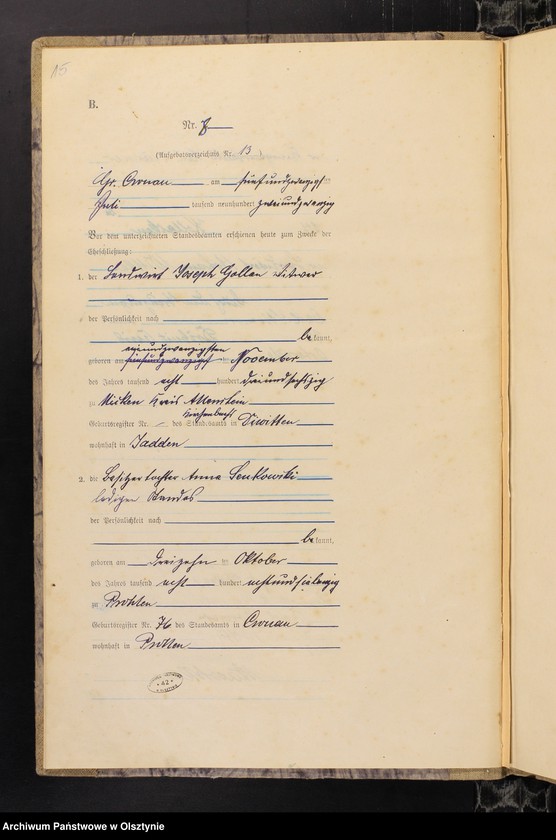 15
B.
Nr. 8
(Aufgebotsverzeichnis Nr. 13)
Gr. Cronau am fünfundzwanzigsten
Juli tausend neunhundert zweiundzwanzig
Vor dem unterzeichneten Standesbeamten erschienen heute zum Zwecke der
Eheschließung:
1. der Landwirt Joseph Gollan Witwer
der Persönlichkeit nach
be kannt,
geboren am fünfundzwanzigst November
des Jahres tausend acht hundert dreiundsechzig
zu Micken Kreis Allenstein
Kirchenbuch
Geburtsregister Nr. – des Standesamts in Diwitten
wohnhaft in Jadden
2. die Besitzertochter Anna Senkowski
ledigen Standes
der Persönlichkeit nach
be kannt,
geboren am dreizehn ten Oktober
des Jahres tausend acht hundert achtundsiebenzig
zu
Geburtsregister Nr. 76 des Standesamts in Cronau
wohnhaft in
42
Archiwum Państwowe w Olsztynie